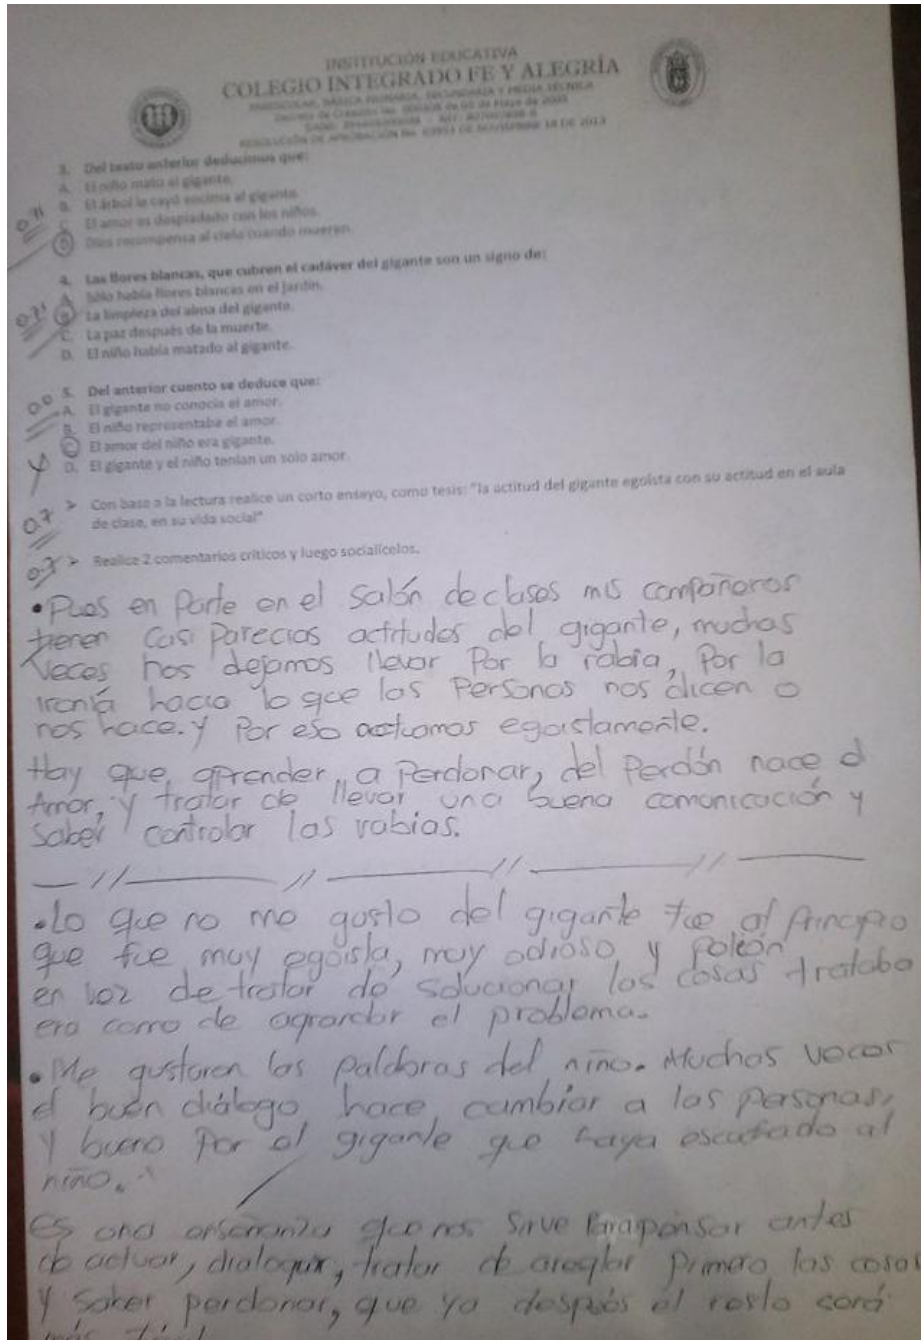 INSTITUCIÓN EDUCATIVA
COLEGIO INTEGRADO FE Y ALEGRÍA
PREESCOLAR, BÁSICA PRIMARIA, SECUNDARIA Y MEDIA TÉCNICA
RESOLUCIÓN DE APROBACIÓN No. DE NOVIEMBRE 18 DE 2013
3. Del texto anterior deducimos que:
A. El niño mato al gigante.
B. El árbol le cayó encima al gigante.
C. El amor es despiadado con los niños.
D. Dios recompensa al cielo cuando mueren.
4. Las flores blancas, que cubren el cadáver del gigante son un signo de:
A. Sólo había flores blancas en el jardín.
B. La limpieza del alma del gigante.
C. La paz después de la muerte.
D. El niño había matado al gigante.
0.0 5. Del anterior cuento se deduce que:
A. El gigante no conocía el amor.
B. El niño representaba el amor.
C. El amor del niño era gigante.
D. El gigante y el niño tenían un solo amor.
0.7 ➢ Con base a la lectura realice un corto ensayo, como tesis: "la actitud del gigante egoísta con su actitud en el aula
de clase, en su vida social"
0.7 ➢ Realice 2 comentarios críticos y luego socialícelos.
• Pues en Parte en el salón de clases mis compañeros
tienen casi parecias actitudes del gigante, muchas
veces nos dejamos llevar Por la rabia, Por la
ironía hacia lo que las Personas nos dicen o
nos hace. y Por eso actuamos egoistamente.
Hay que aprender a Perdonar, del Perdón nace el
Amor, y tratar de llevar una buena comunicación y
saber controlar las rabias.
• Lo que no me gusto del gigante fue al Principio
que fue muy egoísta, muy odioso y peleón
en vez de tratar de solucionar las cosas trataba
era como de agrandar el problema.
• Me gustaron las palabras del niño. Muchas veces
el buen diálogo hace cambiar a las personas,
Y bueno Por el gigante que haya escuchado al
niño.
Es una enseñanza que nos sirve Para pensar antes
de actuar, dialogar, tratar de arreglar primero las cosas
y saber perdonar, que ya después el resto será
más